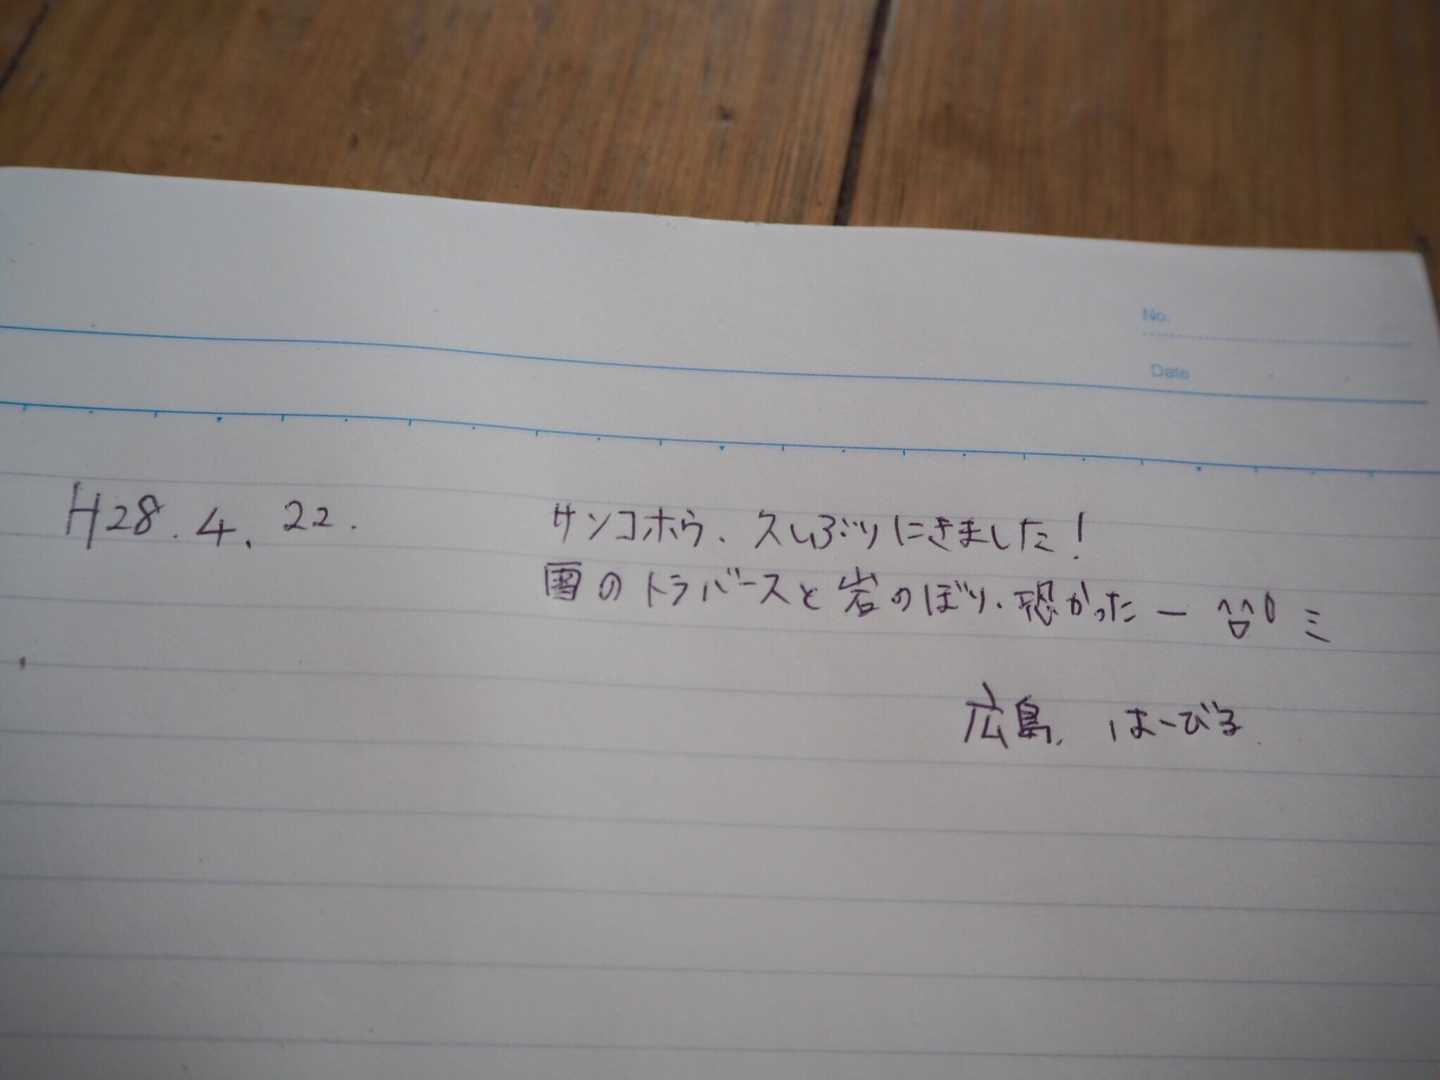 No.
Date
H28.4.22. サンコホウ、久しぶりにきました!
雪のトラバースと岩のぼり、恐かったー
広島、はーびる